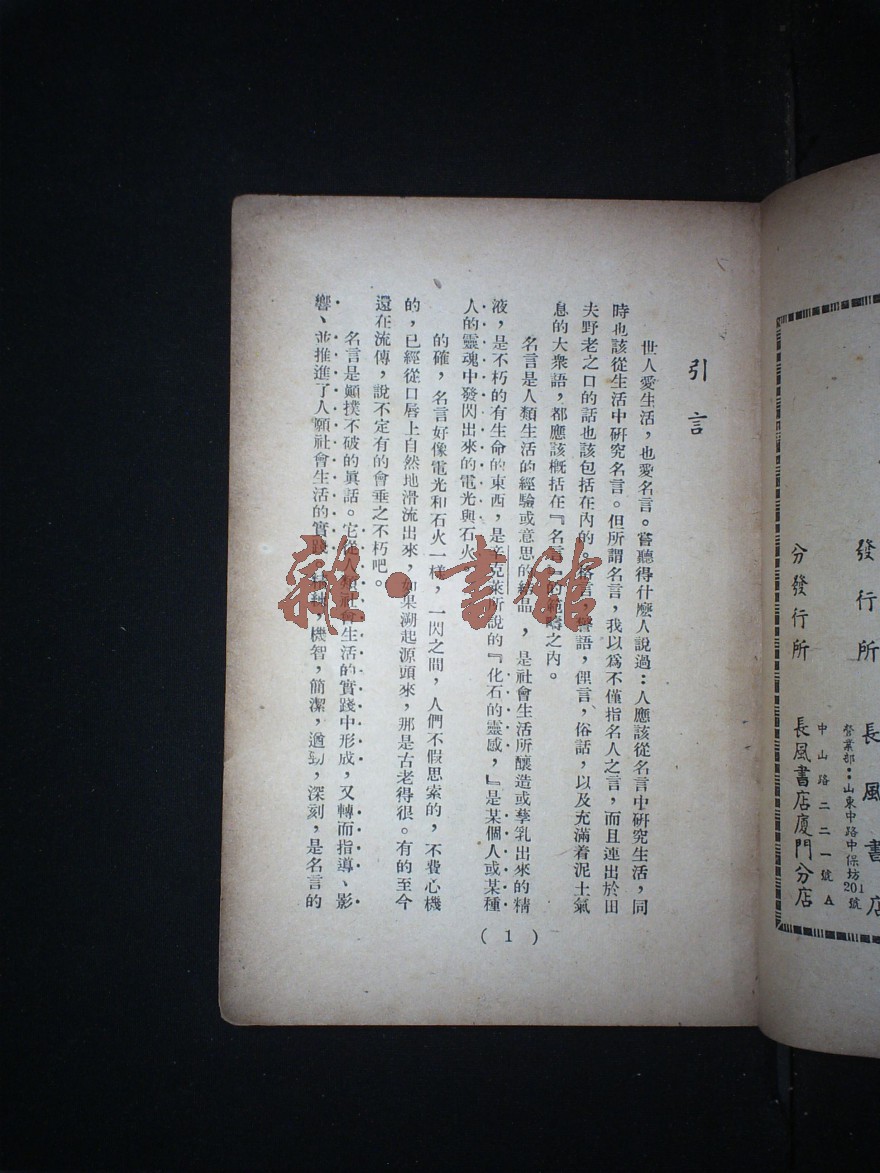 發行所 長風書店
營業部：山東中路中保坊201號
中山路二二一號A
分發行所 長風書店廈門分店
引言
世人愛生活，也愛名言。嘗聽得什麼人說過：人應該從名言中研究生活，同
時也該從生活中研究名言。但所謂名言，我以爲不僅指名人之言，而且連出於田
夫野老之口的話也該包括在內的。格言，警語，俚言，俗話，以及充滿着泥土氣
息的大衆語，都應該概括在『名言』的範疇之內。
名言是人類生活的經驗或意思的結晶，是社會生活所釀造或孳乳出來的精
液，是不朽的有生命的東西，是辛克萊所說的『化石的靈感，』是某個人或某種
人的靈魂中發閃出來的電光與石火。
的確，名言好像電光和石火一樣，一閃之間，人們不假思索的，不費心機
的，已經從口唇上自然地滑流出來，如果溯起源頭來，那是古老得很。有的至今
還在流傳，說不定有的會垂之不朽吧。
名言是顚撲不破的眞話。它從人類社會生活的實踐中形成，又轉而指導、影
響、並推進了人願社會生活的實踐。精辣，機智，簡潔，遒勁，深刻，是名言的
( 1 )
雜·書館